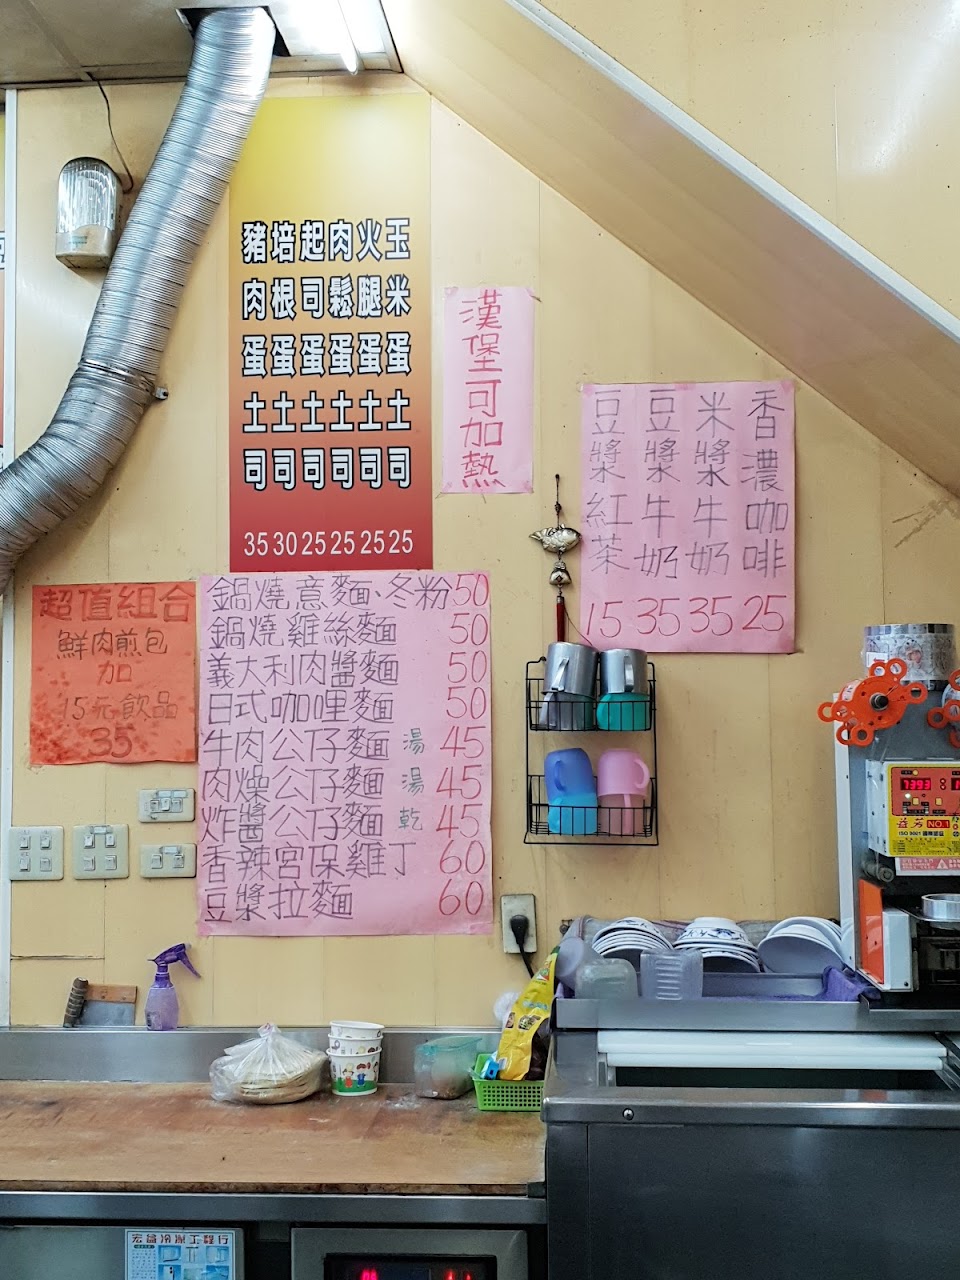 玉米蛋土司 25
火腿蛋土司 25
肉鬆蛋土司 25
起司蛋土司 25
培根蛋土司 30
豬肉蛋土司 35
漢堡可加熱
香濃咖啡 25
米漿牛奶 35
豆漿牛奶 35
豆漿紅茶 15
超值組合
鮮肉煎包
加
15元飲品
35
鍋燒意麵、冬粉 50
鍋燒雞絲麵 50
義大利肉醬麵 50
日式咖哩麵 50
牛肉公仔麵 湯 45
肉燥公仔麵 湯 45
炸醬公仔麵 乾 45
香辣宮保雞丁 60
豆漿拉麵 60
益芳 NO.1
ISO 9001
宏益冷凍工程行